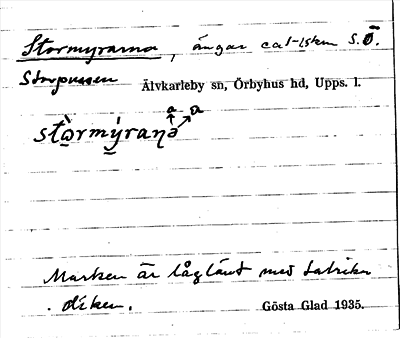 Stormyrarna, ängar ca 1-1,5 km S.Ö.
Storpussen
Älvkarleby sn, Örbyhus hd, Upps. l.
a a
stòrmýraŋə
Marken är låglänt med talrika
diken. Gösta Glad 1935.